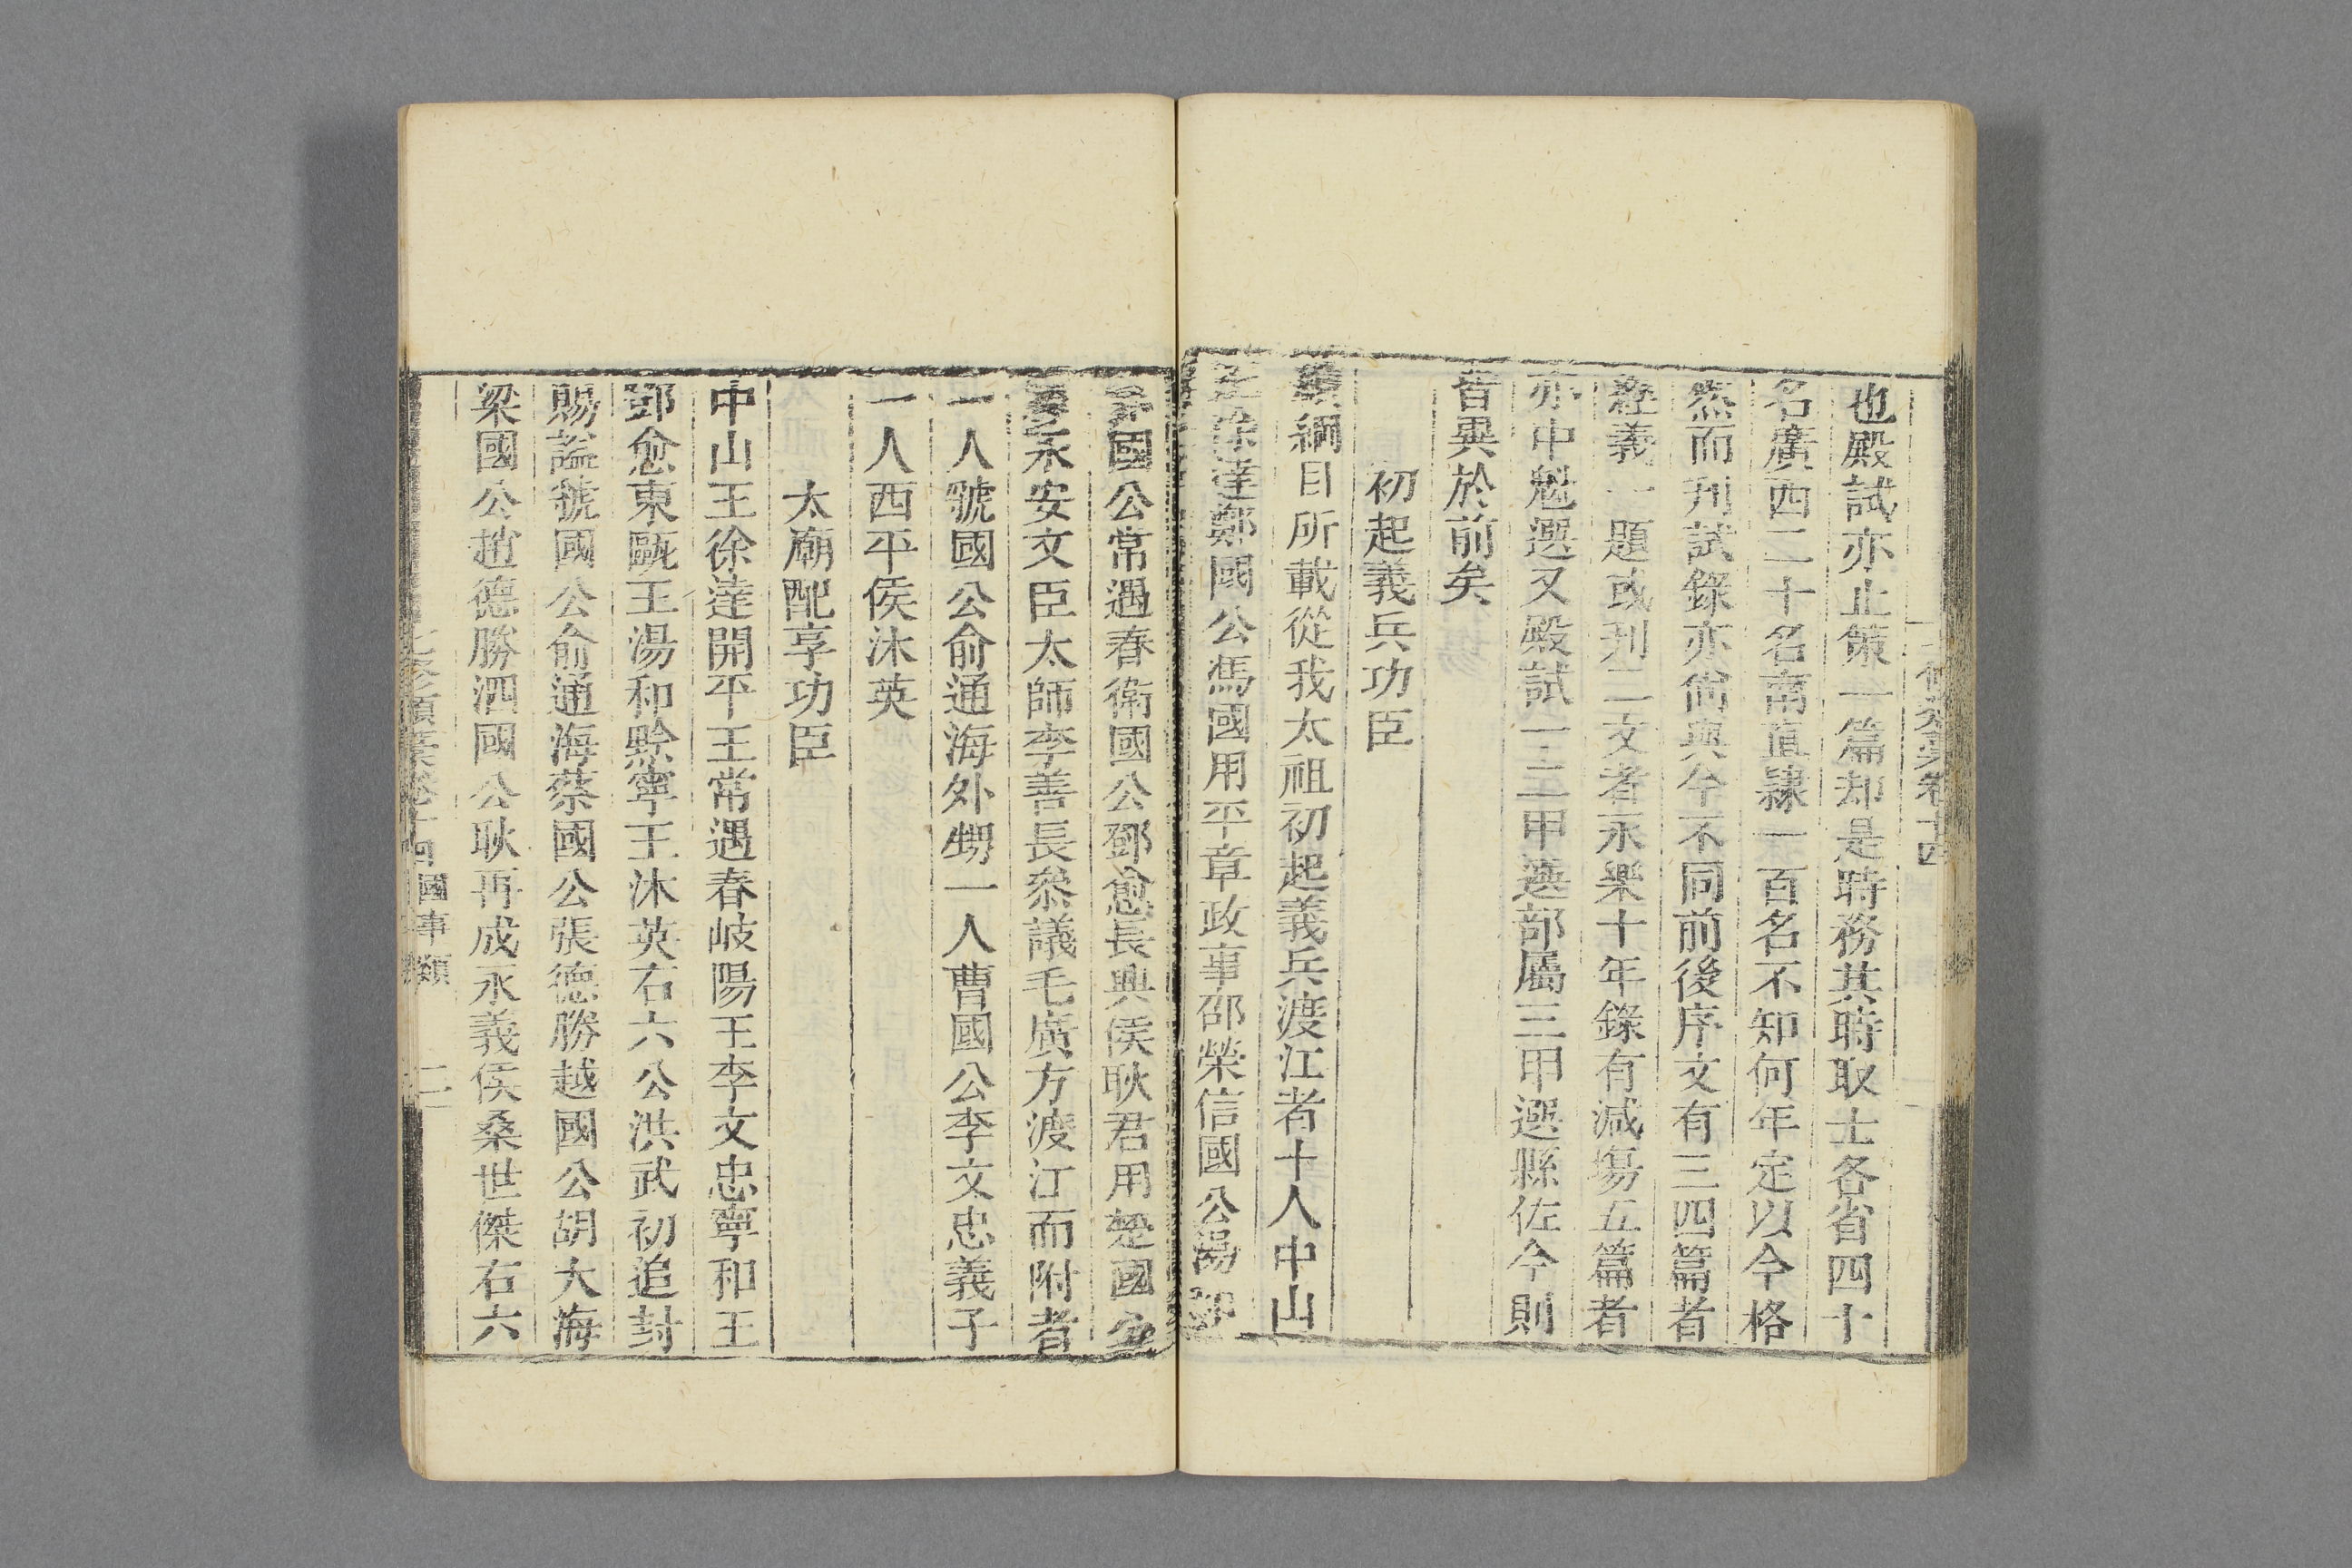 也殿試亦止策一篇却是時務其時取士各省四十
名廣西二十名南直隸一百名不知何年定以今格
然而刊試錄亦尚與今不同前後序文有三四篇者
經義一題或刊二文者永樂十年錄有減場五篇者
亦中魁選又殿試一二甲選部屬三甲選縣佐今則
皆異於前矣
初起義兵功臣
綱目所載從我太祖初起義兵渡江者十人中山
王徐達鄭國公馮國用平章政事邵榮信國公湯和
國公常遇春衛國公鄧愈長興侯耿君用楚國
永安文臣太師李善長叅議毛廣方渡江而附者
一人虢國公俞通海外甥一人曹國公李文忠義子
一人西平侯沐英
太廟配享功臣
中山王徐達開平王常遇春岐陽王李文忠寧和王
鄧愈東甌王湯和黔寧王沐英右六公洪武初追封
賜謚虢國公俞通海蔡國公張德勝越國公胡大海
梁國公趙德勝泗國公耿再成永義侯桑世傑右六
七修類藁卷十四 國事類 二